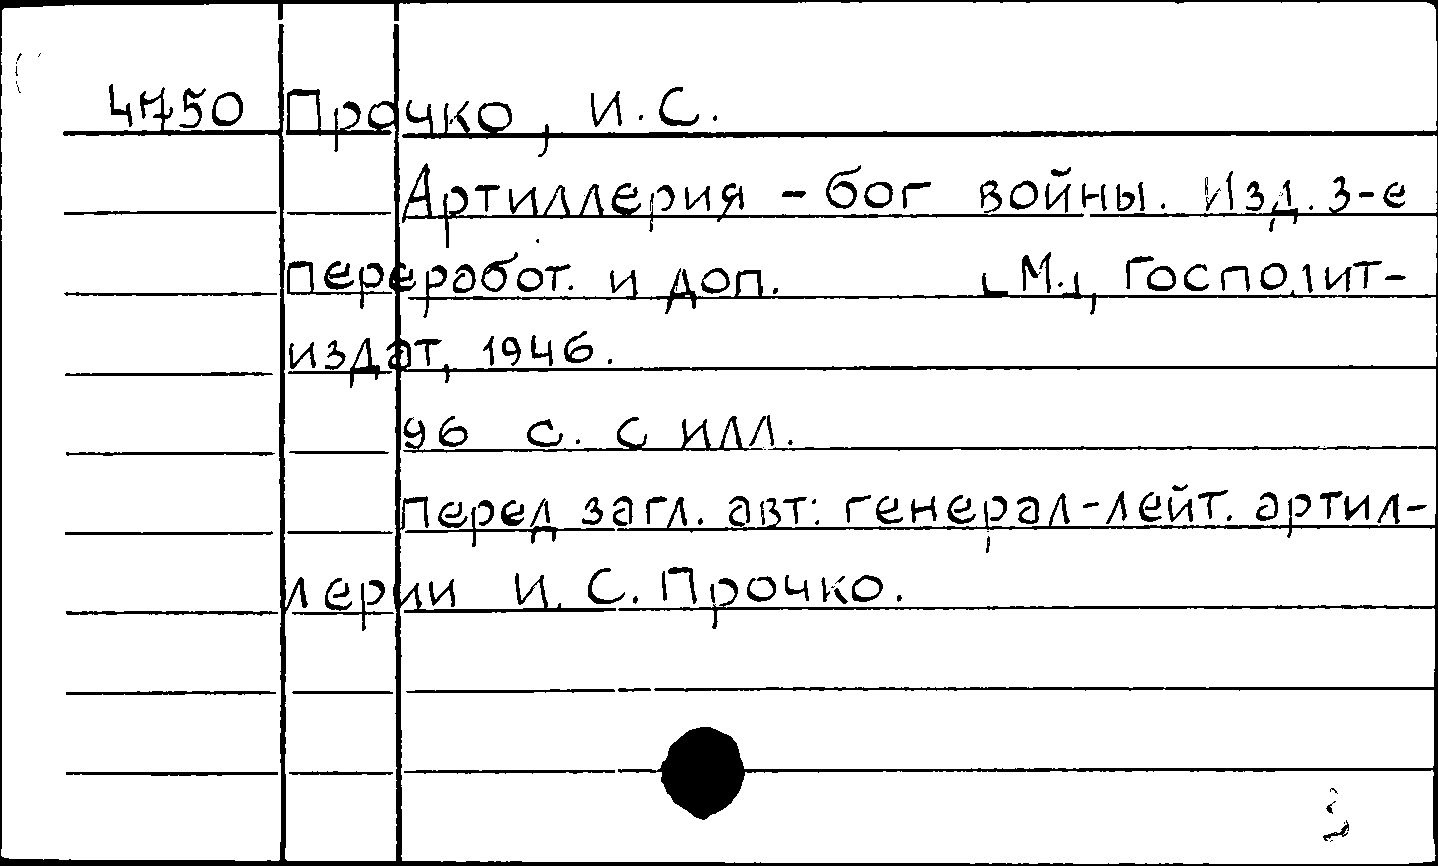 4750 Прочко, И.С.
Артиллерия – бог войны. Изд. 3-е
переработ. и доп. [М.], Госполит-
издат, 1946.
96 с. с илл.
Перед загл. авт: генерал-лейт. артил-
лерии И. С. Прочко.